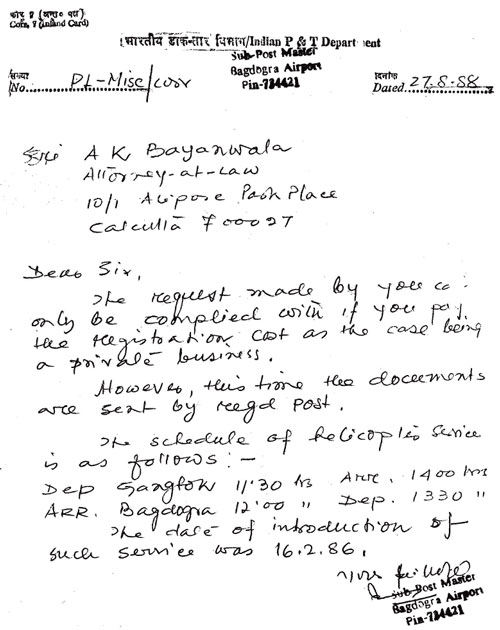 कोर ९ (अन्तः पत्र)
Corr. 9 (Inland Card)
भारतीय डाक-तार विभाग/Indian P & T Department
Sub-Post Master
Bagdogra Airport
Pin-734421
संख्या
No. PL-Misc/corr
दिनांक
Dated 27.8.88
A K Bayanwala
Attorney-at-Law
10/1 Alipore Park Place
Calcutta 700027
Dear Sir,
The request made by you ca
only be complied with if you pay
the registration cost as the case being
a private business.
However, this time the documents
are sent by regd post.
The schedule of helicopter service
is as follows :-
Dep Gangtok 11'30 hrs Arr. 1400 hrs
ARR. Bagdogra 12'00 " Dep. 1330 "
The date of introduction of
such service was 16.2.86.
Sub-Post Master
Bagdogra Airport
Pin-734421